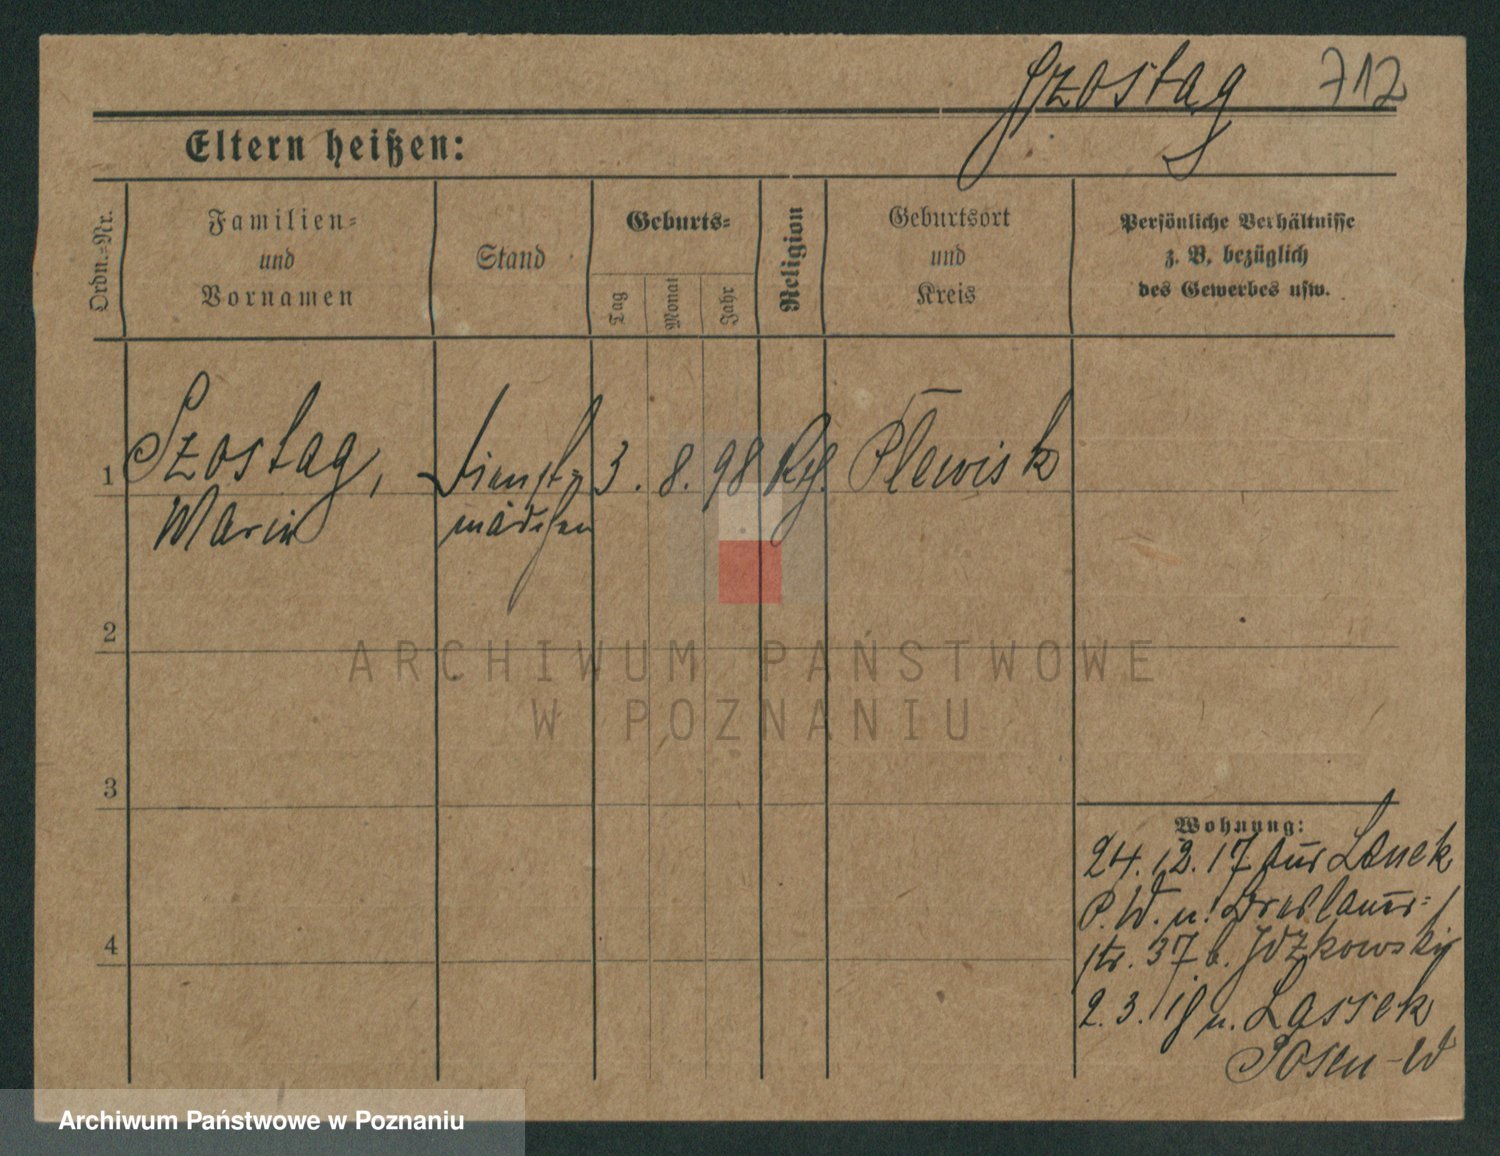 Szostag 712
Eltern heißen:
Ordn.-Nr.
Familien-
und
Vornamen
Stand
Geburts-
Tag
Monat
Jahr
Religion
Geburtsort
und
Kreis
Persönliche Verhältnisse
z. B. bezüglich
des Gewerbes usw.
1 Szostag, Dienst- 3. 8. 98 Plewisk
Maria mädchen
2
3
4
ARCHIWUM PAŃSTWOWE
W POZNANIU
Wohnung:
24. 12. 17 aus Lanek
P. W. n. Breslauer-
str. 37 b.
2. 3. 18 n. Lassek
Posen-W
Archiwum Państwowe w Poznaniu